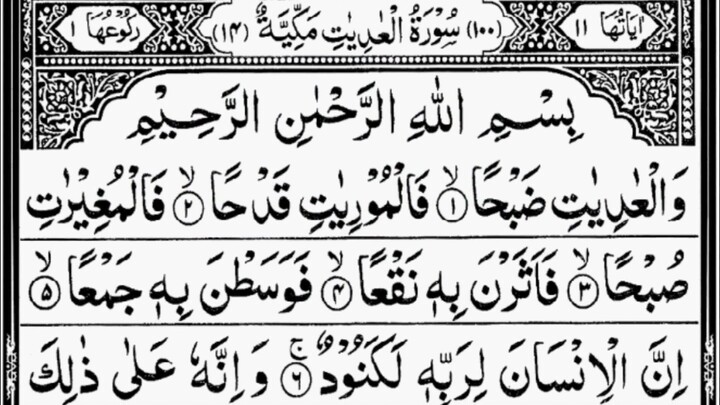 اٰیَاتُهَا ۱۱ (۱۰۰) سُوْرَةُ الْعٰدِیٰتِ مَكِّیَّةٌ (۱۴) رُكُوْعُهَا ۱
بِسْمِ اللّٰهِ الرَّحْمٰنِ الرَّحِیْمِ
وَالْعٰدِیٰتِ ضَبْحًا ۙ﴿۱﴾ فَالْمُوْرِیٰتِ قَدْحًا ۙ﴿۲﴾ فَالْمُغِیْرٰتِ
صُبْحًا ۙ﴿۳﴾ فَاَثَرْنَ بِهٖ نَقْعًا ۙ﴿۴﴾ فَوَسَطْنَ بِهٖ جَمْعًا ۙ﴿۵﴾
اِنَّ الْاِنْسَانَ لِرَبِّهٖ لَكَنُوْدٌ ۚ﴿۶﴾ وَ اِنَّهٗ عَلٰی ذٰلِكَ